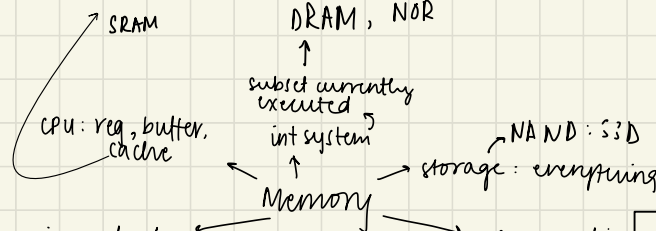 SRAM
DRAM, NOR
subset currently
executed
CPU: reg, buffer,
cache
int system
NAND: SSD
storage: everything
Memory